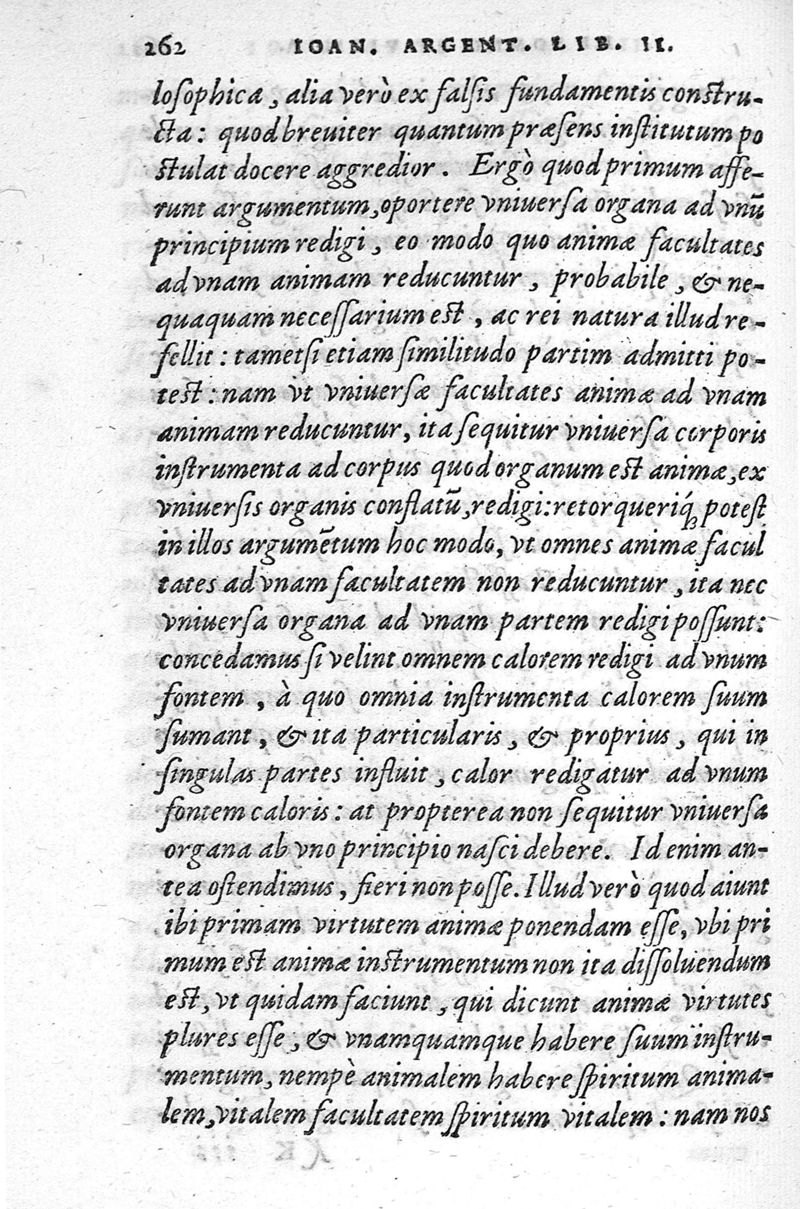 262 IOAN. ARGENT. LIB. II.
losophica, alia verò ex falsis fundamentis constru-
cta: quod breuiter quantum præsens institutum po
stulat docere aggredior. Ergò quod primum affe-
runt argumentum, oportere vniuersa organa ad vnũ
principium redigi, eo modo quo animæ facultates
ad vnam animam reducuntur, probabile, & ne-
quaquam necessarium est, ac rei natura illud re-
fellit: tametsi etiam similitudo partim admitti po-
test: nam vt vniuersæ facultates animæ ad vnam
animam reducuntur, ita sequitur vniuersa corporis
instrumenta ad corpus quod organum est animæ, ex
vniuersis organis conflatũ, redigi: retorqueriq́; potest
in illos argumẽtum hoc modo, vt omnes animæ facul
tates ad vnam facultatem non reducuntur, ita nec
vniuersa organa ad vnam partem redigi possunt:
concedamus si velint omnem calorem redigi ad vnum
fontem, à quo omnia instrumenta calorem suum
sumant, & ita particularis, & proprius, qui in
singulas partes influit, calor redigatur ad vnum
fontem caloris: at propterea non sequitur vniuersa
organa ab vno principio nasci debere. Id enim an-
tea ostendimus, fieri non posse. Illud verò quod aiunt
ibi primam virtutem animæ ponendam esse, vbi pri
mum est animæ instrumentum non ita dissoluendum
est, vt quidam faciunt, qui dicunt animæ virtutes
plures esse, & vnamquamque habere suum instru-
mentum, nempè animalem habere spiritum anima-
lem, vitalem facultatem spiritum vitalem: nam nos